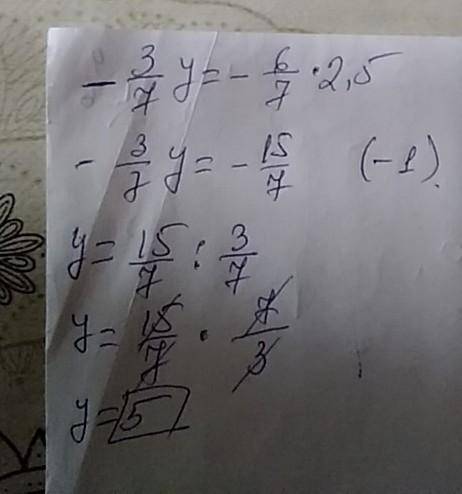 - 3/7 y = - 6/7 · 2,5
- 3/7 y = - 15/7 (-1)
y = 15/7 : 3/7
y = 15/7 · 7/3
y = 5